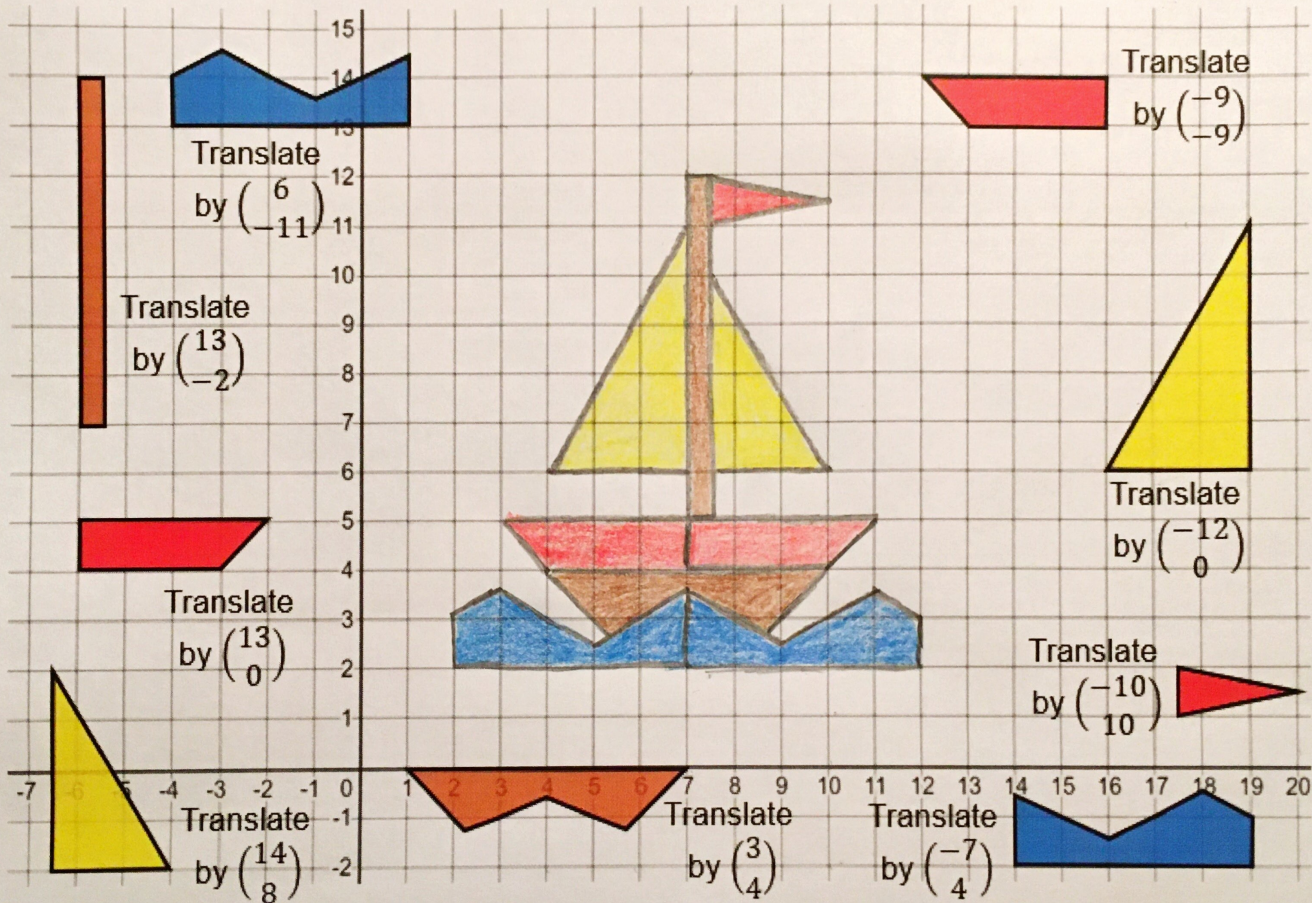 15
14
13
12
11
10
9
8
7
6
5
4
3
2
1
-7 -6 -5 -4 -3 -2 -1 0 2 3 4 5 6 7 8 9 10 11 12 13 14 15 16 17 18 19 20
-1
-2
Translate
by (6
-11)
Translate
by (-9
-9)
Translate
by (13
-2)
Translate
by (-12
0)
Translate
by (13
0)
Translate
by (-10
10)
Translate
by (14
8)
Translate
by (3
4)
Translate
by (-7
4)